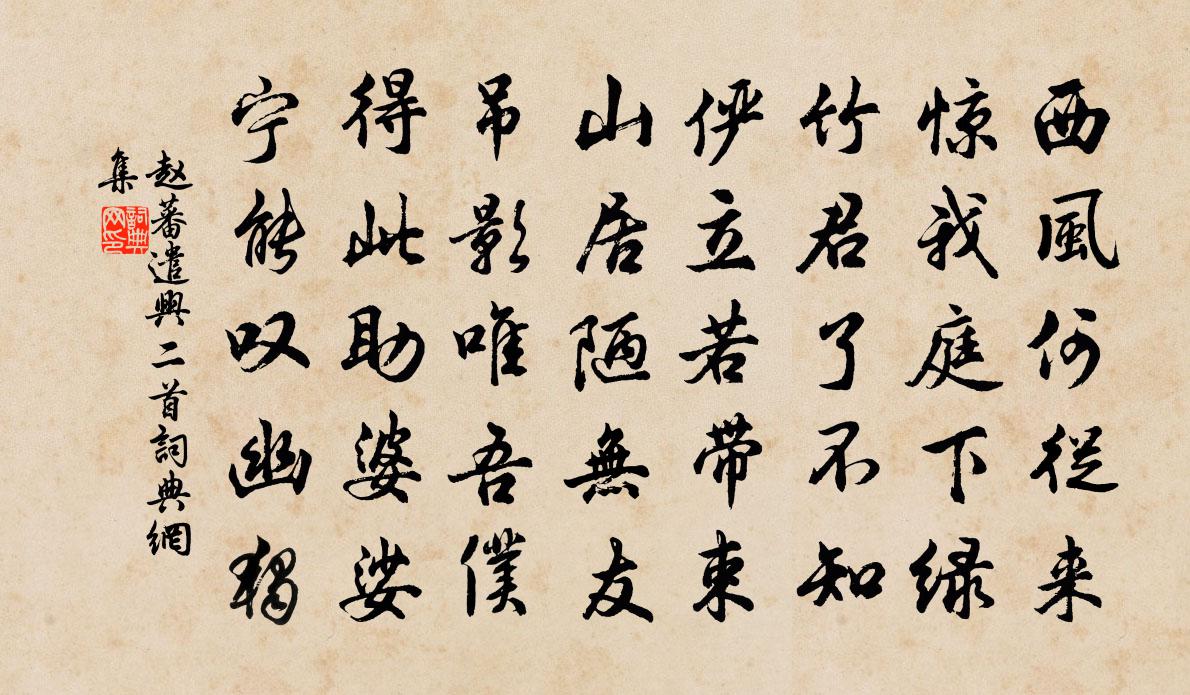 西風何從来
惊我庭下绿
竹君了不知
俨立若带束
山居陋無友
吊影唯吾僕
得此助婆娑
宁能叹幽獨
赵蕃遣興二首詞典網
集
詞典
网印